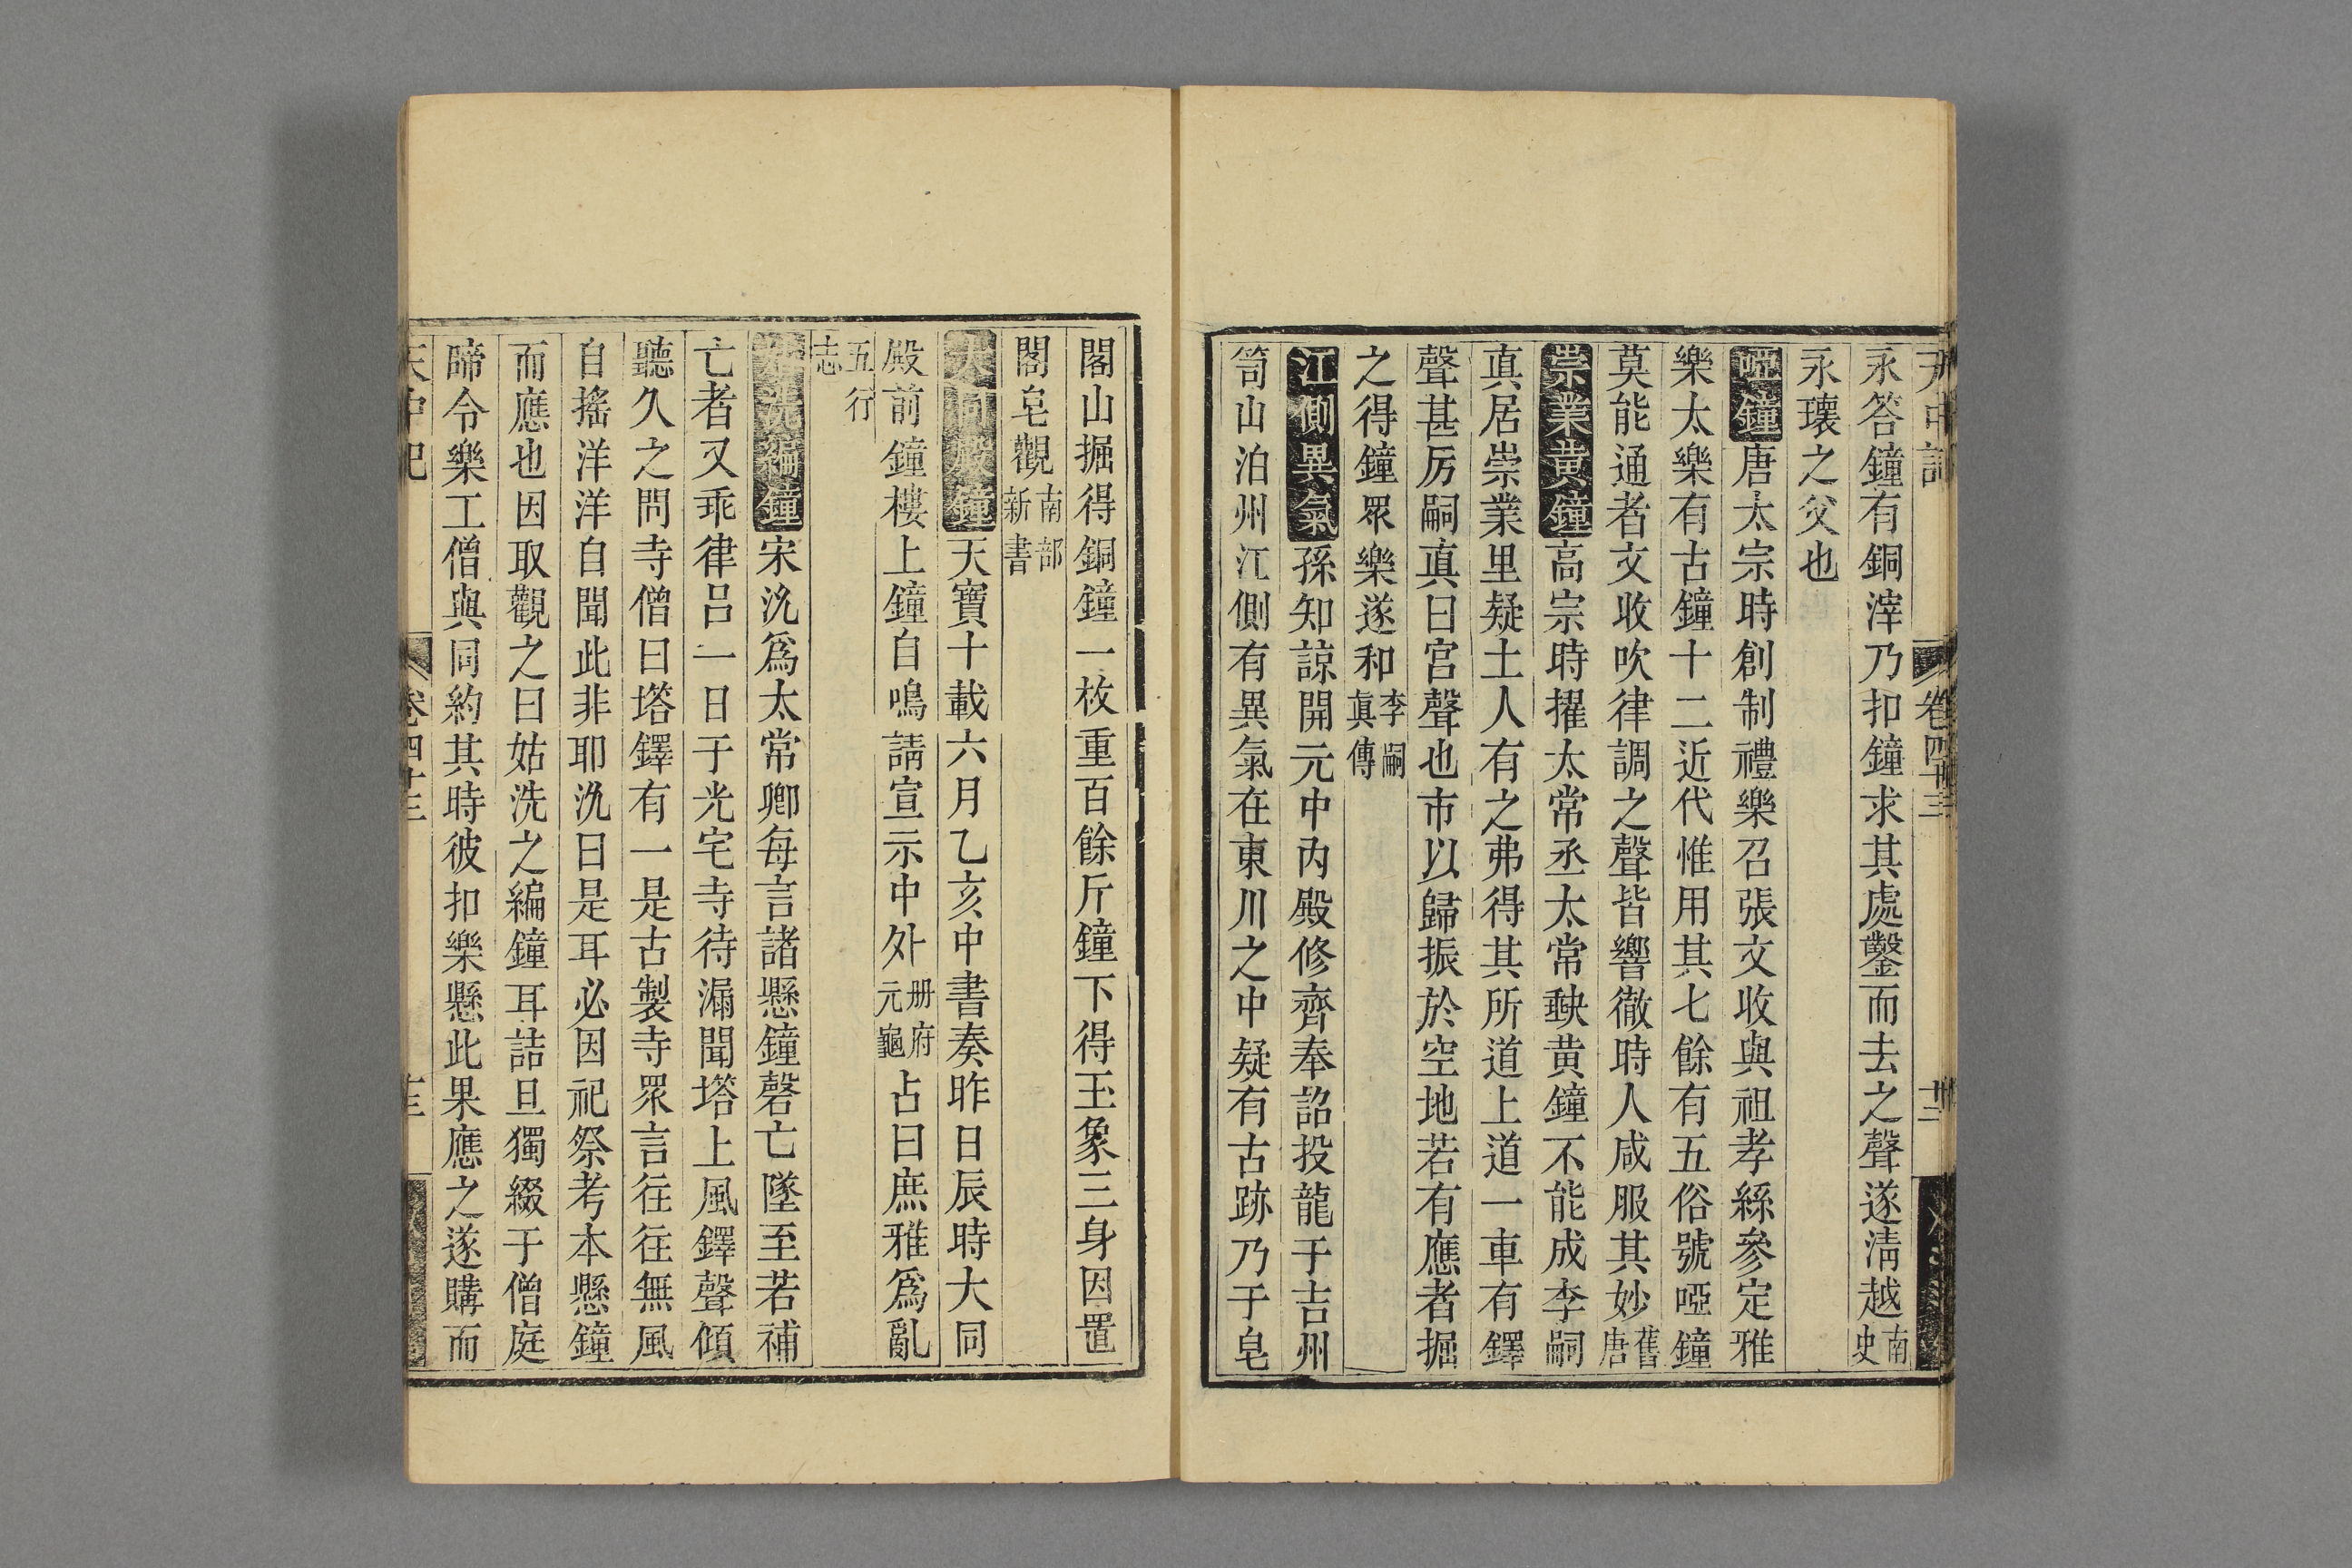 天中記 卷四十三 十二
永答鐘有銅滓乃扣鐘求其處鑿而去之聲遂清越南史
永瓌之父也
啞鐘唐太宗時創制禮樂召張文收與祖孝絲參定雅
樂太樂有古鐘十二近代惟用其七餘有五俗號啞鐘
莫能通者文收吹律調之聲皆響徹時人咸服其妙舊唐
崇業黃鐘高宗時擢太常丞太常缺黃鐘不能成李嗣
真居崇業里疑土人有之弗得其所道上道一車有鐸
聲甚厉嗣真曰宮聲也市以歸振於空地若有應者掘
之得鐘眾樂遂和李嗣真傳
江側異氣孫知諒開元中內殿修齊奉詔投龍于吉州
笥山泊州江側有異氣在東川之中疑有古跡乃于皂
閣山掘得銅鐘一枚重百餘斤鐘下得玉象三身因置
閣皂觀南部新書
大同殿鐘天寶十載六月乙亥中書奏昨日辰時大同
殿前鐘樓上鐘自鳴請宣示中外册府元龜占曰庶雅為亂
五行志
姑洗編鐘宋沇為太常卿每言諸懸鐘磬亡墜至若補
亡者又乖律呂一日于光宅寺待漏聞塔上風鐸聲傾
聽久之問寺僧曰塔鐸有一是古製寺眾言往往無風
自搖洋洋自聞此非耶沇曰是耳必因祀祭考本懸鐘
而應也因取觀之曰姑洗之編鐘耳詰旦獨綴于僧庭
啼令樂工僧與同約其時彼扣樂懸此果應之遂購而
天中記 卷四十三 十三